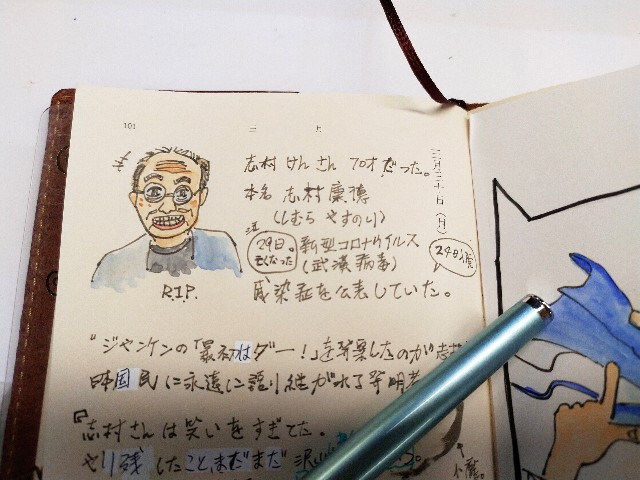 101
三 上
三月三十日(月)
志村けんさん 70才だった。
本名 志村康徳
(しむら やすのり)
注
29日。
亡くなった
新型コロナウイルス
(武漢病毒)
24日頃
R.I.P.
感染症を公表していた。
"ジャンケンの「最初はグー!」を発案したのが志村
日本国民に永遠に語り継がれる発明者
『志村さんは笑いをすぎてた。
やり残したこと、まだまだ沢山
小龍。